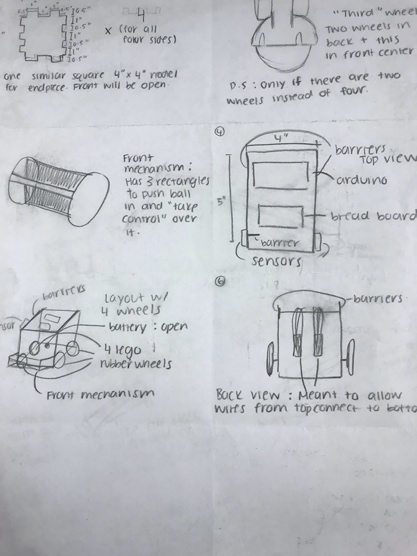 4
x (for all
four sides)
0.5"
1"
0.5"
1"
0.5"
one similar square 4"x 4" model
for endpiece. Front will be open.
"Third" wheel
Two wheels in
back + this
in front center
D.S : Only if there are two
wheels instead of four.
Front
mechanism:
Has 3 rectangles
to push ball
in and "take
control" over
it.
4
4"
barriers
Top view
arduino
5"
bread board
barrier
sensors
barriers
Layout w/
4 wheels
battery : open
4 lego
rubber wheels
Front mechanism
6
barriers
Back view : Meant to allow
wires from top connect to